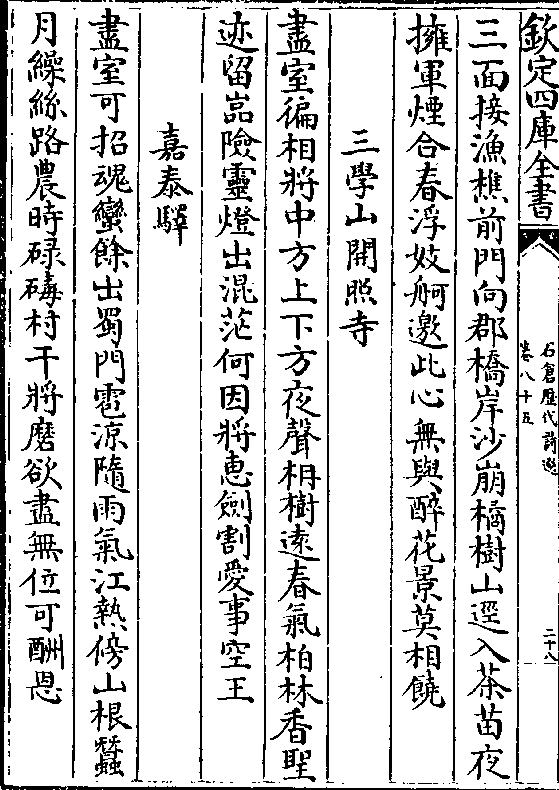 欽定四庫全書
石倉歷代詩選
卷八十五
二十八
三面接漁樵前門向郡橋岸沙崩橘樹山逕入茶苗夜
擁軍煙合春浮妓舸邀此心無與醉花景莫相饒
三學山開照寺
盡室徧相將中方上下方夜聲枏樹遠春氣柏林香聖
迹留嵓險靈燈出混茫何因將惠劍割愛事空王
嘉泰驛
盡室可招魂蠻餘出蜀門雹涼隨雨氣江熱傍山根蠶
月繰絲路農時碌碡村干將磨欲盡無位可酬恩